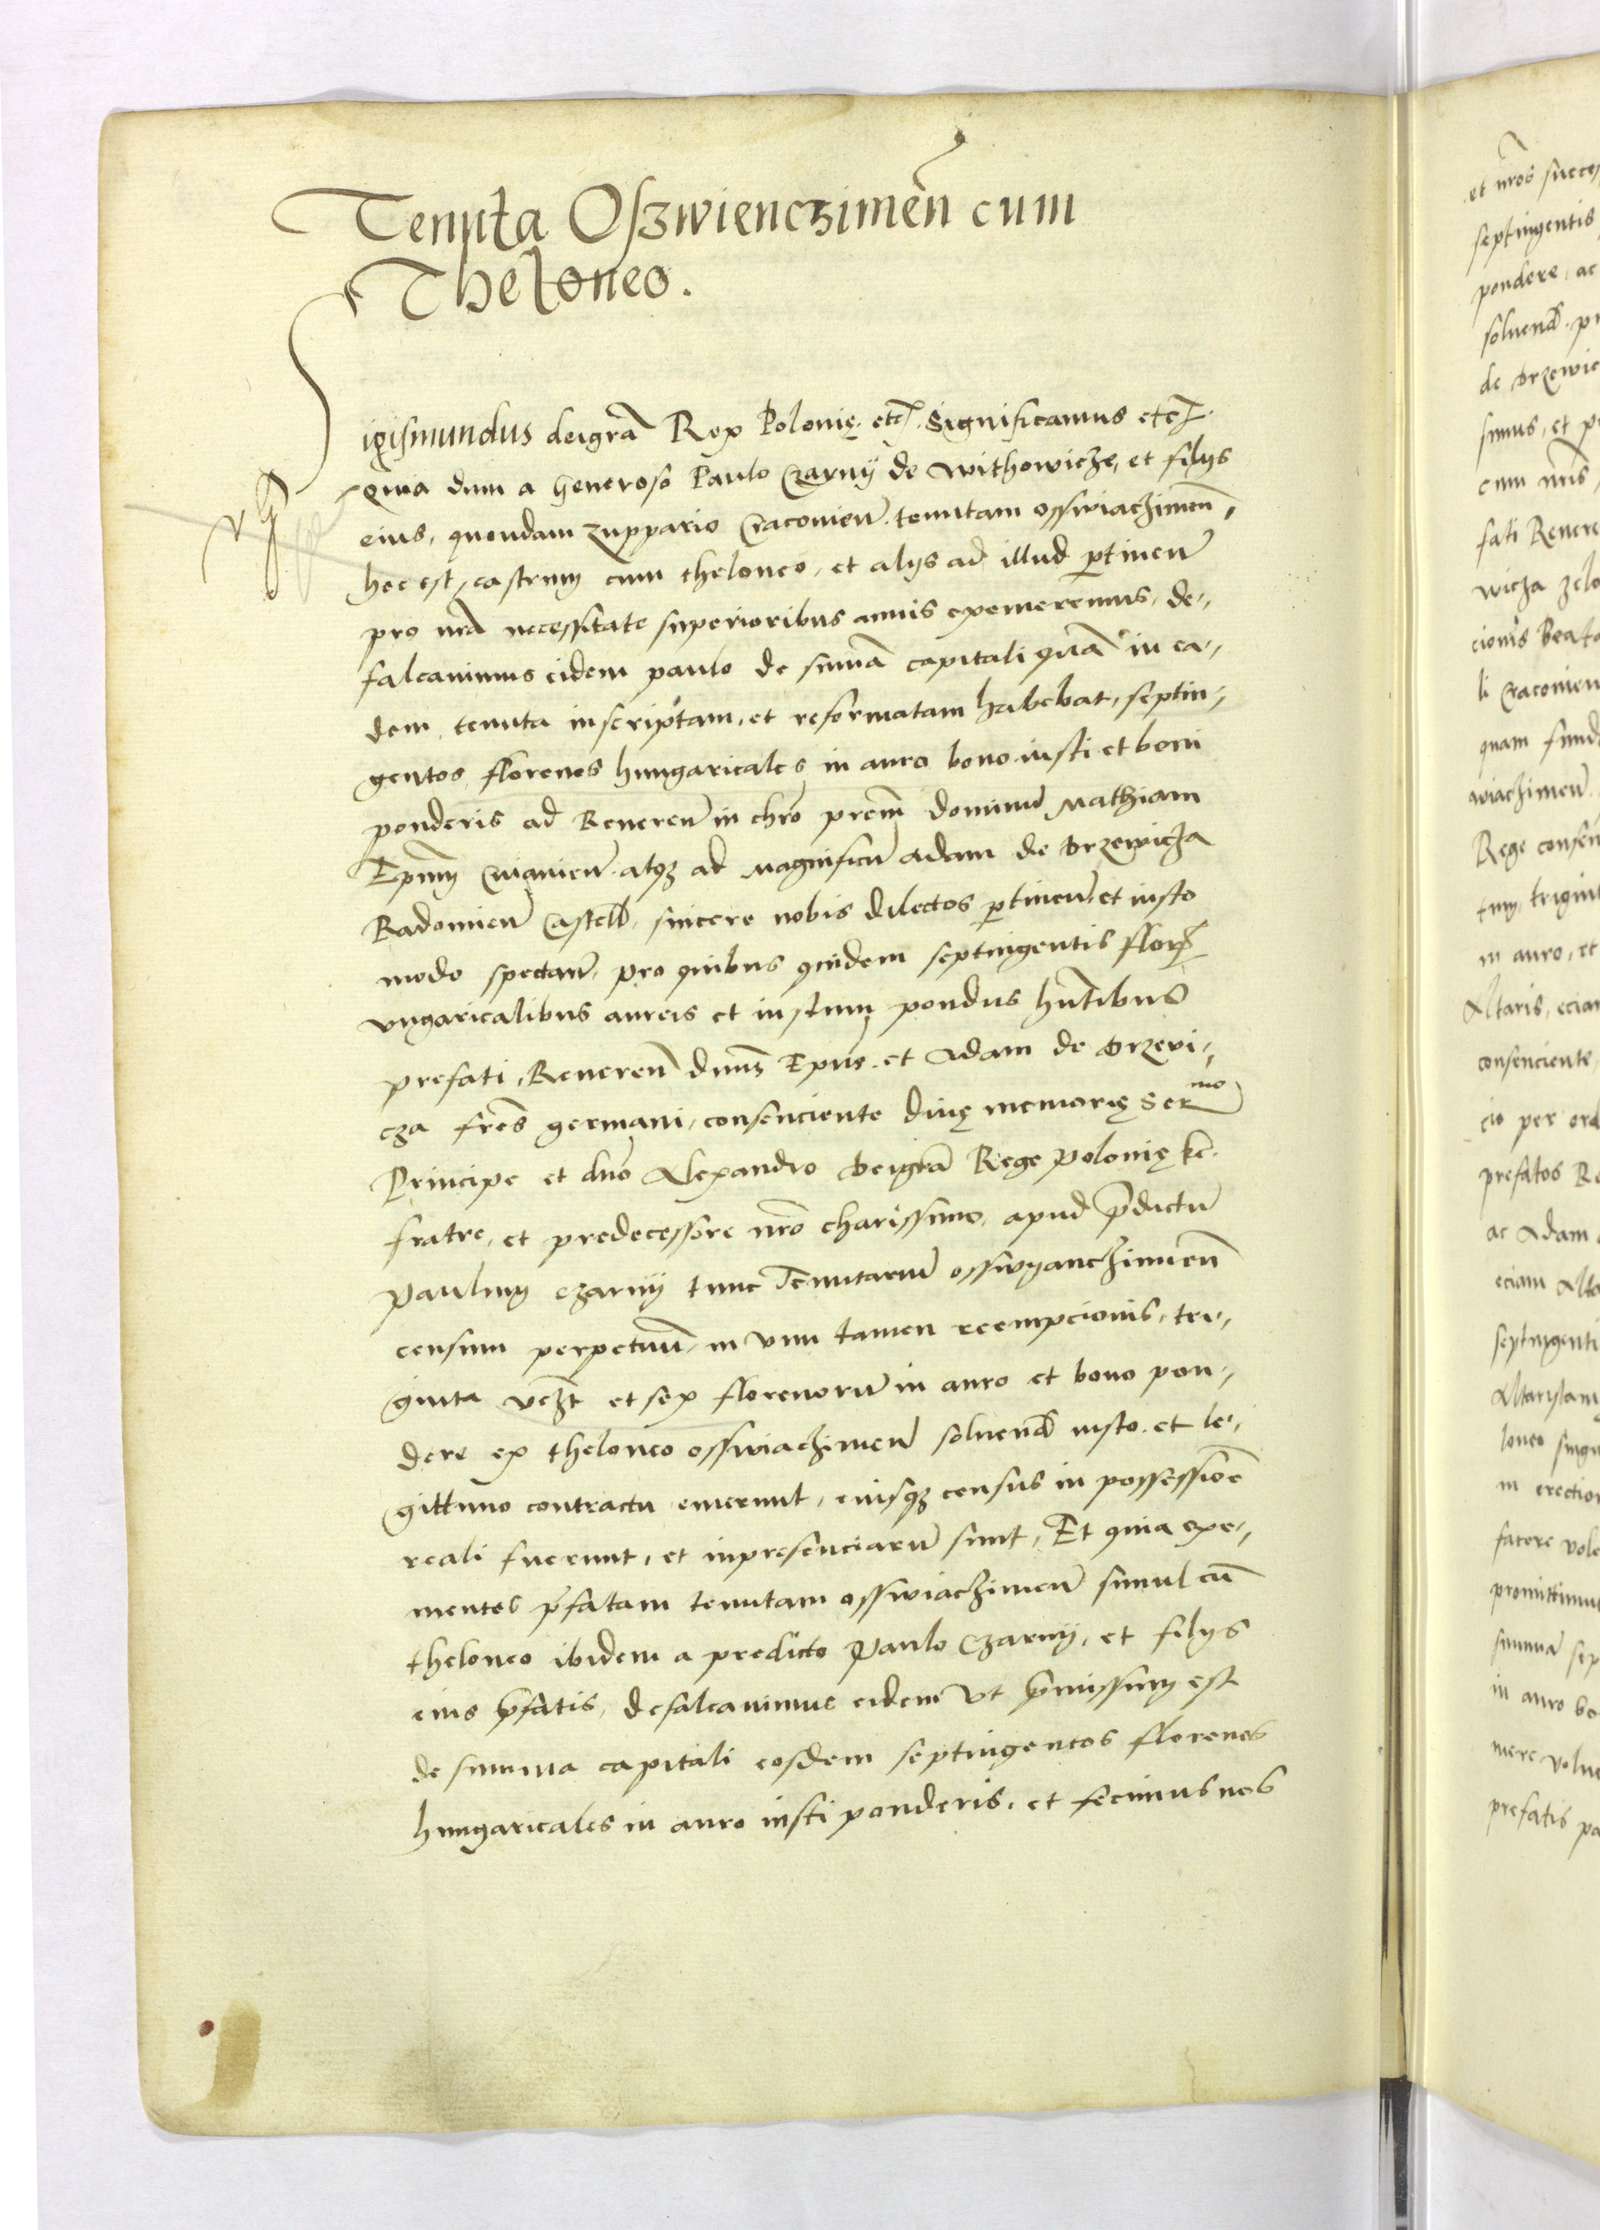 Tenuta Oszwienczimeñ cum
Theloneo.
Sigismundus deigrã Rex Polonię. etc̃. Significamus etc̃.
Quia dum a Generoso Paulo Czarnÿ de Withowicze, et filÿs
eius, quondam zuppario Cracovieñ. tenutam osswiaczimeñ,
hoc est, castrum cum theloneo, et alÿs ad illud ꝑtineñ
pro nrã necessitate superioribus annis exemeremus, de-
falcavimus eidem paulo de sum̃a capitali quã in ea-
dem tenuta inscriptam, et reformatam habebat, septin-
gentos florenos hungaricales in auro bono iusti et boni
ponderis ad Revereñ in chrõ prẽm dominũ Mathiam
Ep̃um Cuiavieñ. atqꝫ ad Magnificũ Adam de Drzewicza
Radomieñ Castell̃. sincere nobis dilectos ꝑtineñ. et iusto
modo spectañ. pro quibus quidem septingentis floꝝ̃
ungaricalibus aureis et iustum pondus hñtibus
prefati, Revereñ dñus Ep̃us. et Adam de Drzevi-
cza frẽs germani, consenciente divę memorię Ser^mo
Principe et dñõ Alexandro Deigrã Rege Polonię &c.
fratre, et predecessore nrõ charissimo, apud p̃dictũ
Paulum Czarnÿ tunc Tenutariũ osswÿanczimieñ
censum perpetuũ, in vim tamen reempcionis, tri-
ginta vcz̃t et sex florenorũ in auro et bono pon-
dere ex theloneo osswiaczimeñ solvenð iusto. et le-
gittimo contractu emerunt, eiusqꝫ census in possessiõe
reali fuerunt, et inpresenciarũ sunt, Et quia exe-
mentes p̃fatam tenutam osswiaczimeñ simul cũ
theloneo ibidem a predicto Paulo Czarnÿ, et filÿs
eius p̃fatis, defalcavimus eidem Ut p̃missum est
de summa capitali eosdem septingentos florenos
hungaricales in auro iusti ponderis, et fecimus nos
et nrõs succes
septingentis
pondere, ac
solvenð. pr
de Drzewic
simus, et p
cum nrĩs,
fati Revere
wicza zelo
cionis Beat
li Cracovien
quam fund
wiaczimeñ.
Rege consen
tum, trigint
in auro, et
Altaris, eciam
consenciente,
cio per ord
prefatos Re
ac Adam
eciam Alta
septingenti
Altaristam
loneo singu
in erection
facere vole
promittimus
summã sep
in auro bo
mere volue
prefatis pa